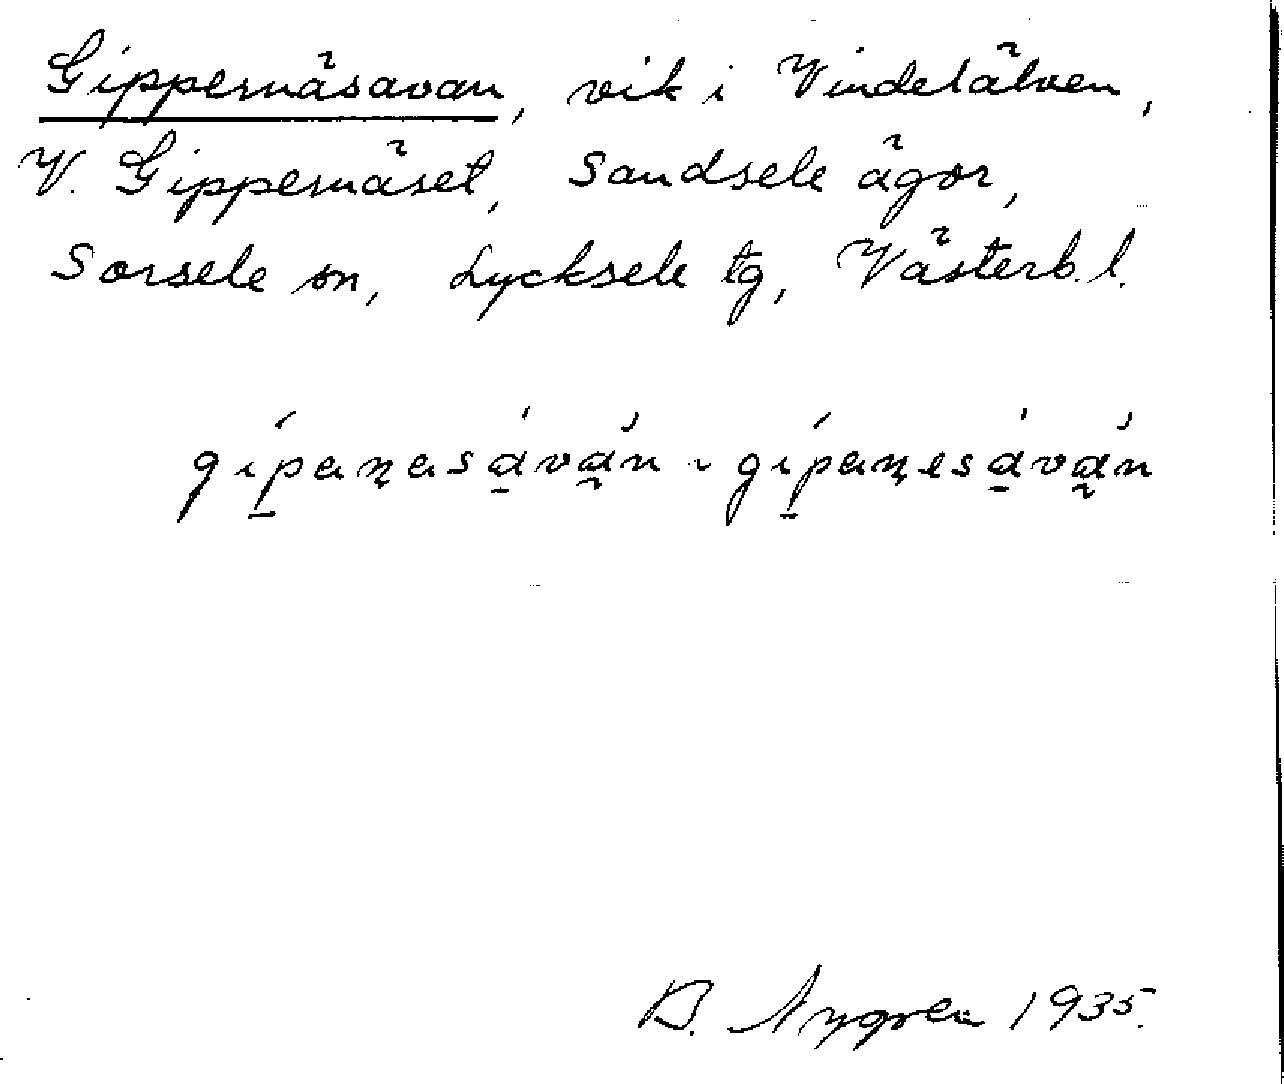 Gippernäsavan, vik i Vindelälven,
V. Gippernäset, Sandsele ägor,
Sorsele sn, Lycksele tg, Västerb. l.
B. Nygren 1935.